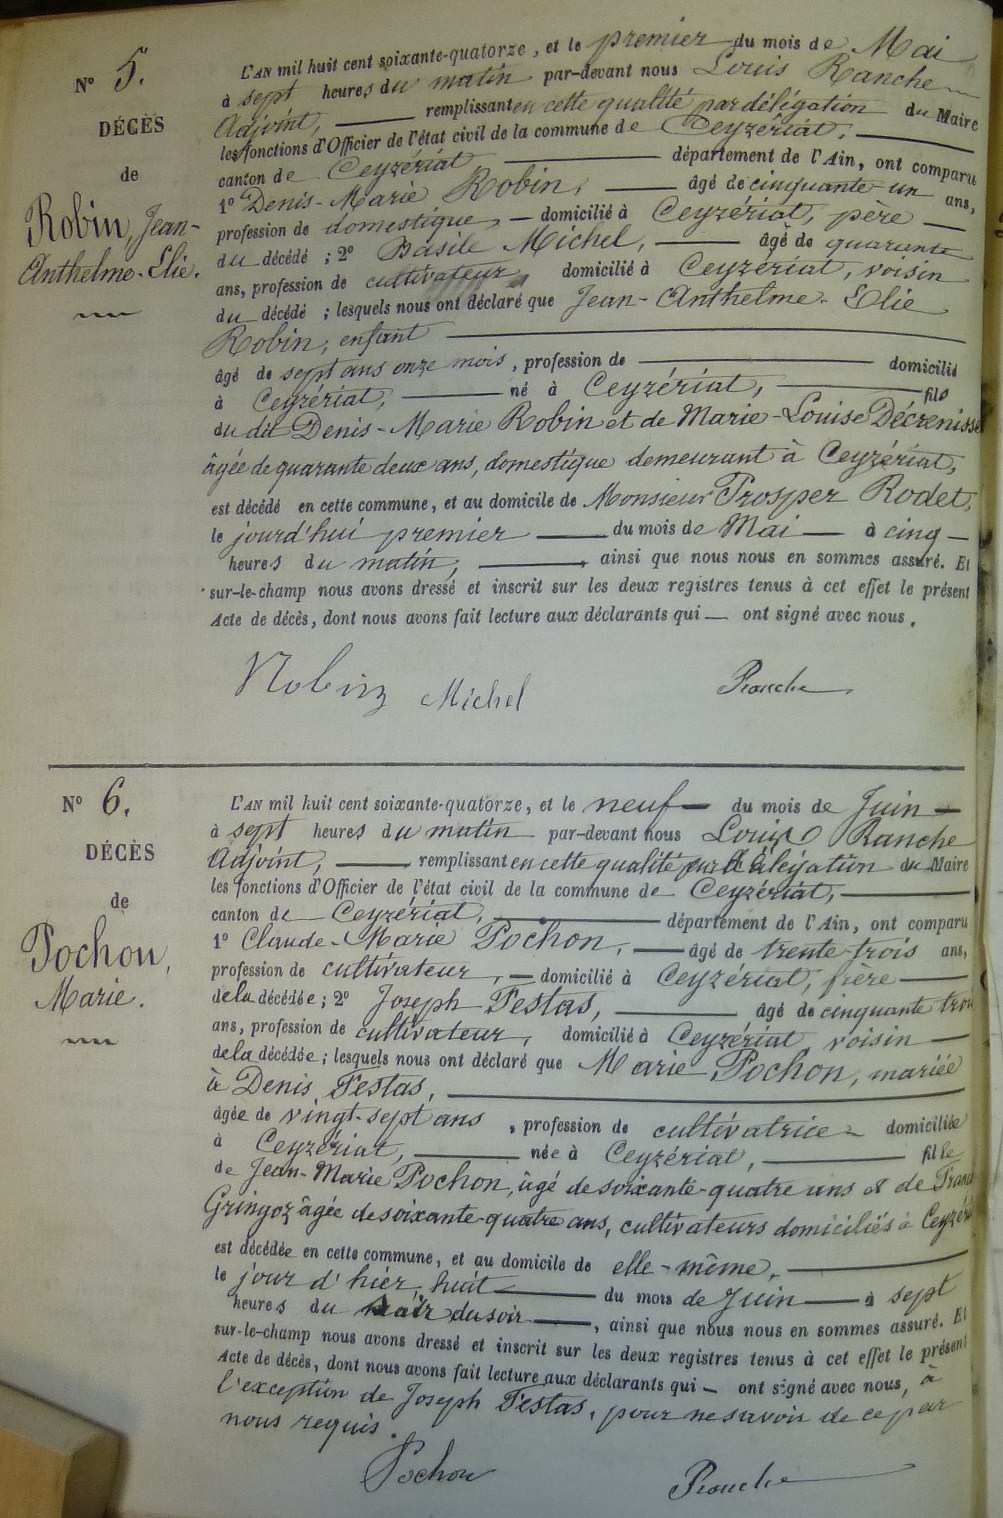 N° 5.
DÉCÈS
de
Robin, Jean-
Anthelme-Elie.
L'AN mil huit cent soixante-quatorze, et le premier du mois de Mai
à sept heures du matin par-devant nous Louis Ranche
Adjoint, remplissant en cette qualité par délégation du Maire
les fonctions d'Officier de l'état civil de la commune de Ceyzériat,
canton de Ceyzériat département de l'Ain, ont comparu
1° Denis-Marie Robin, âgé de cinquante-un ans,
profession de domestique, domicilié à Ceyzériat, père
du décédé ; 2° Basile Michel, âgé de quarante
ans, profession de cultivateur, domicilié à Ceyzériat, voisin
du décédé ; lesquels nous ont déclaré que Jean-Anthelme-Elie
Robin, enfant
âgé de sept ans onze mois, profession de domicilié
à Ceyzériat, né à Ceyzériat, fils
du dit Denis-Marie Robin et de Marie-Louise Décrenisse
âgée de quarante deux ans, domestique demeurant à Ceyzériat,
est décédé en cette commune, et au domicile de Monsieur Prosper Rodet,
le jourd'hui premier du mois de Mai à cinq
heures du matin, ainsi que nous nous en sommes assuré. Et
sur-le-champ nous avons dressé et inscrit sur les deux registres tenus à cet effet le présent
Acte de décès, dont nous avons fait lecture aux déclarants qui ont signé avec nous.
Robin Michel Ranche
N° 6.
DÉCÈS
de
Pochon,
Marie.
L'AN mil huit cent soixante-quatorze, et le neuf du mois de Juin
à sept heures du matin par-devant nous Louis Ranche
Adjoint, remplissant en cette qualité par délégation du Maire
les fonctions d'Officier de l'état civil de la commune de Ceyzériat,
canton de Ceyzériat, département de l'Ain, ont comparu
1° Claude-Marie Pochon, âgé de trente-trois ans,
profession de cultivateur, domicilié à Ceyzériat, frère
de la décédée ; 2° Joseph Festas, âgé de cinquante trois
ans, profession de cultivateur, domicilié à Ceyzériat voisin
de la décédée ; lesquels nous ont déclaré que Marie Pochon, mariée
à Denis Festas,
âgée de vingt-sept ans, profession de cultivatrice domiciliée
à Ceyzériat, née à Ceyzériat, fille
de Jean-Marie Pochon, âgé de soixante-quatre ans & de
Gringoz âgée de soixante-quatre ans, cultivateurs domiciliés à
est décédée en cette commune, et au domicile de elle-même,
le jour d'hier, huit du mois de Juin à sept
heures du soir du soir, ainsi que nous nous en sommes assuré. Et
sur-le-champ nous avons dressé et inscrit sur les deux registres tenus à cet effet le présent
Acte de décès, dont nous avons fait lecture aux déclarants qui ont signé avec nous, à
l'exception de Joseph Festas, pour ne savoir de ce par
nous requis.
Pochon Ranche